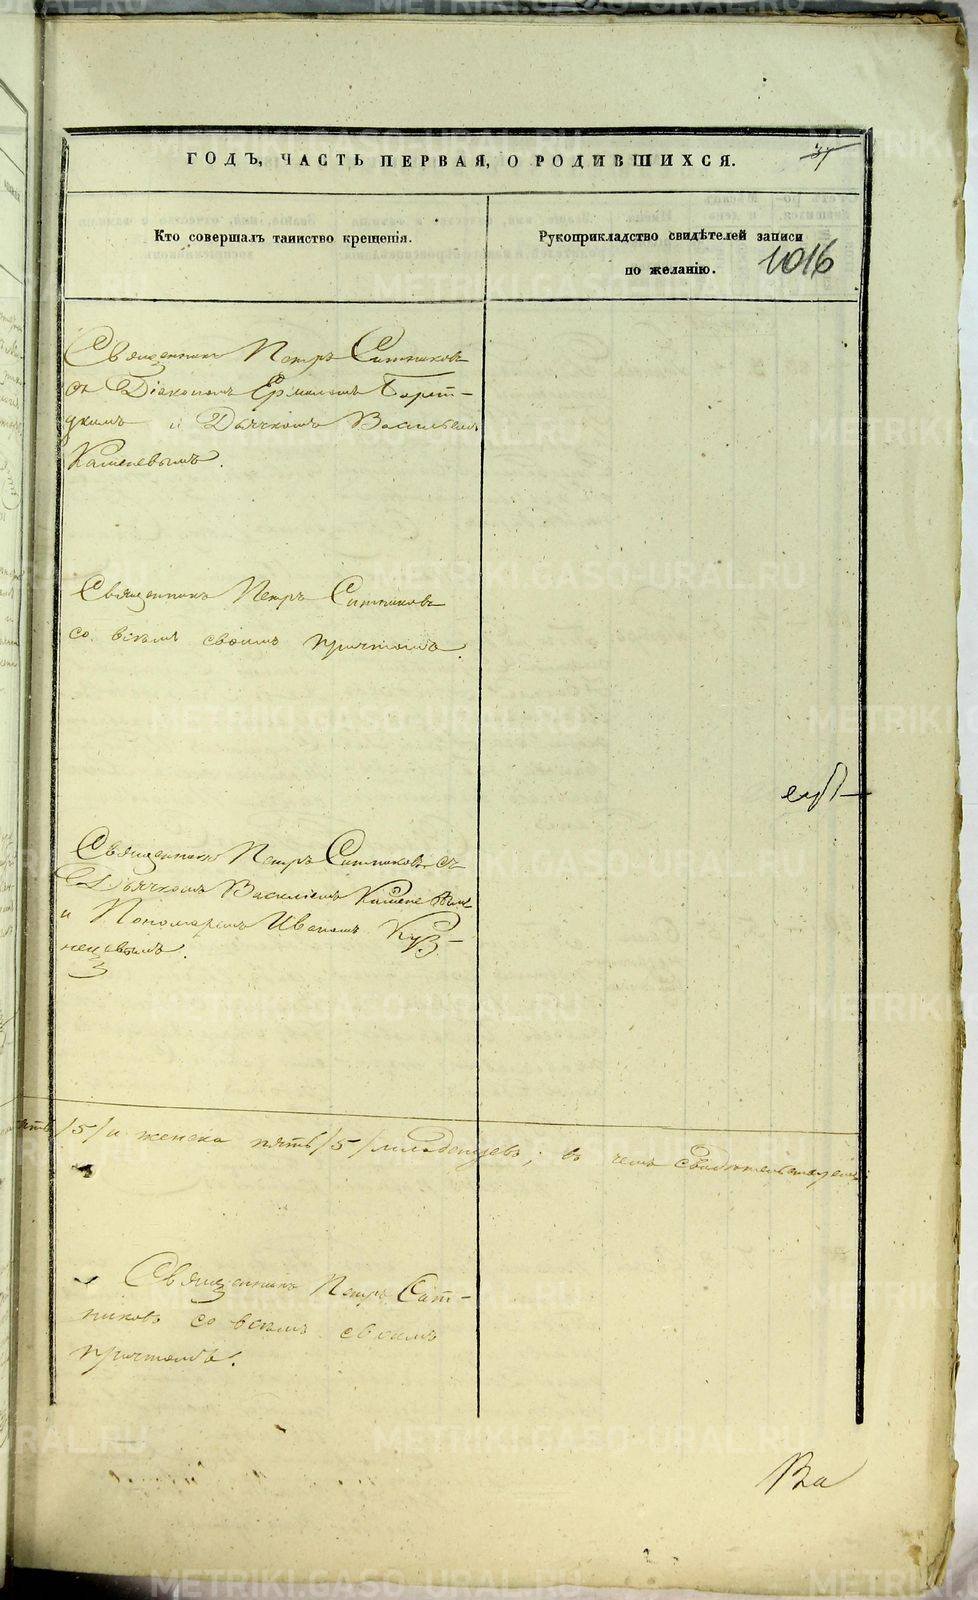 ГОДЪ, ЧАСТЬ ПЕРВАЯ, О РОДИВШИХСЯ.
37
Кто совершалъ таинство крещенія.
Рукоприкладство свидѣтелей записи
по желанію.
1016
Священникъ Петръ Ситниковъ
съ Діакономъ Ермиломъ
и Дьячкомъ Василіемъ
Кашеневымъ.
Священникъ Петръ Ситниковъ
со всѣмъ своимъ причтомъ.
Священникъ Петръ Ситниковъ съ
Дьячкомъ Василіемъ Кашеневым
и Пономаремъ Иваномъ Куз-
нецовымъ.
/5/ и женска пять /5/ младенцевъ; въ чемъ свидѣтельствуемъ:
Священникъ Петръ Сит-
никовъ со всѣмъ своимъ
причтомъ.
METRIKI.GASO-URAL.RU